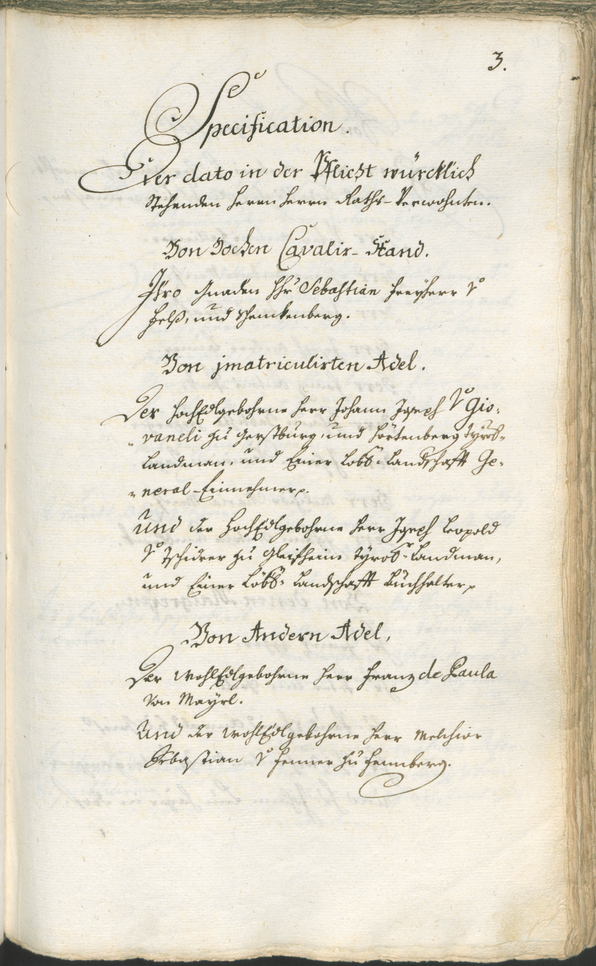 3.
Specification.
Der dato in der Pflicht würcklich
stehenden Herrn Herrn Raths-Verwohnten.
Von Hochen Cavalir-Stand.
Ihro Gnaden Hr: Sebastian Freyherr v
Helß, und Schenkenberg.
Von jmatriculirten Adel.
Der HochEdlgebohrne Herr Johann Joseph v Gio-
vaneli zu Gerstburg, und Hörtenberg Tyrol-
Landman, und Einer Löbl: Landschafft Ge-
neral-Einnehmer.
Und der HochEdlgebohrne Herr Joseph Leopold
v Tschiderer zu Gleifheim Tyrol: Landman,
und Einer Löbl: Landschafft Buchhalter.
Von Andern Adel.
Der WohlEdlgebohrne Herr Franz de Paula
von Mayrl.
Und der WohlEdlgebohrne Herr Melchior
Sebastian v Fenner zu Fennberg.